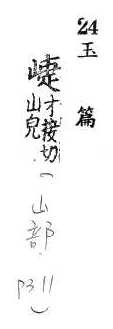 24
玉篇
崨才接切山皃(山部
P311)